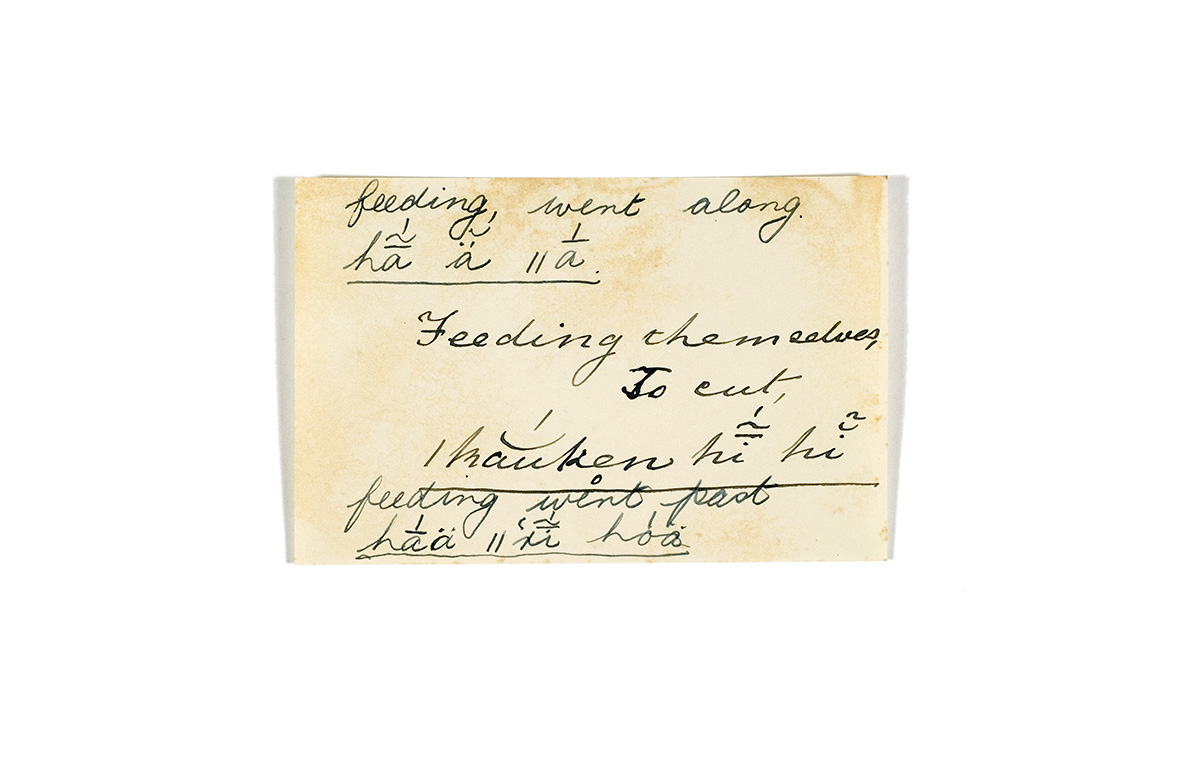 feeding, went along.
hā̰́ ä̰́ ǁā́.
Feeding themselves,
To cut,
ǀkắuken hḭ̄́ hĭ̃
feeding went past
hā́ä ǁx̔ḭ̄́ hóä̀